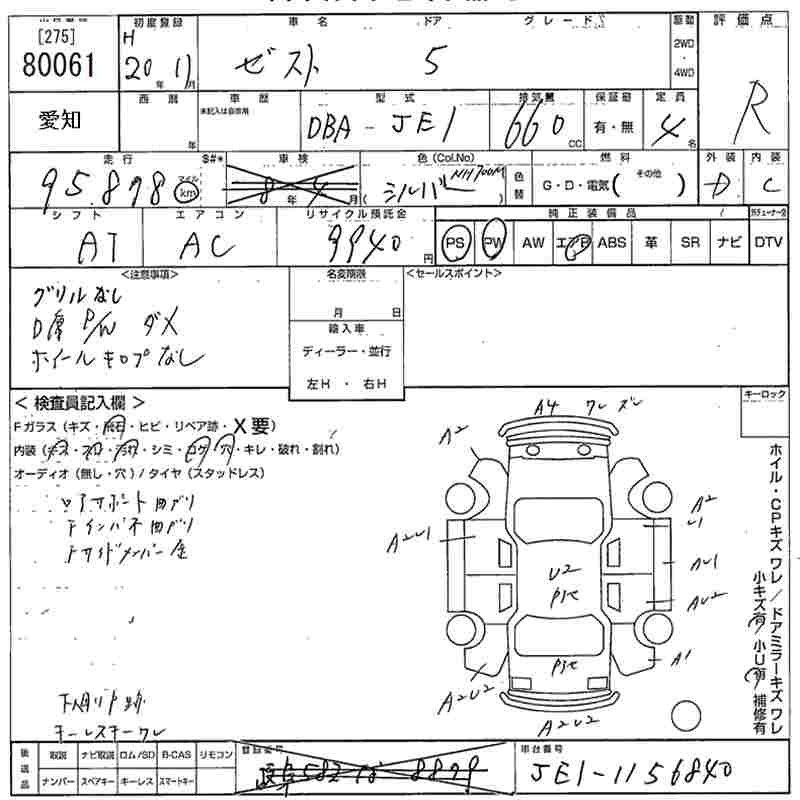 [275]
80061
愛知
初度登録
H
20 年 11 月
車名
ゼスト
ドア
5
グレード
駆動
2WD
4WD
評価点
R
西暦
年
車歴
未記入は自家用
型式
DBA - JE1
排気量
660 CC
保証書
有・無
定員
4 名
走行
95,878
マイル
km
S#*
車検
8 年 4 月
色 (Col.No)
シルバー NH700M
色替
燃料
G・D・電気( その他 )
外装
D
内装
C
シフト
AT
エアコン
AC
リサイクル預託金
9940 円
純正装備品
PS PW AW エアB ABS 革 SR ナビ DTV
<注意事項>
グリルなし
D席 P/W ダメ
ホイールキャップなし
名変期限
月 日
輸入車
ディーラー・並行
左H・右H
<セールスポイント>
< 検査員記入欄 >
Fガラス (キズ・飛石・ヒビ・リペア跡・X要)
内装 (キズ・汚れ・シミ・コゲ・穴・キレ・破れ・割れ)
オーディオ (無し・穴) / タイヤ (スタッドレス)
コアサポート曲がり
Fインパネ曲がり
Fサイドメンバー
下廻り 跡
キーレスキーワレ
キーロック
A4 ワレ ズレ
A2
A2
U1
A2U1
AU1
U2
Pﾅｾ
AU2
A1
Pﾅｾ
A2U2
A2U2
ホイル・CPキズ ワレ / ドアミラーキズ ワレ
小キズ有 小U有 補修有
後送品
取説 ナビ取説 ロム/SD B-CAS リモコン
ナンバー スペアキー キーレス スマートキー
登録番号
582 8879
車台番号
JE1-1156840